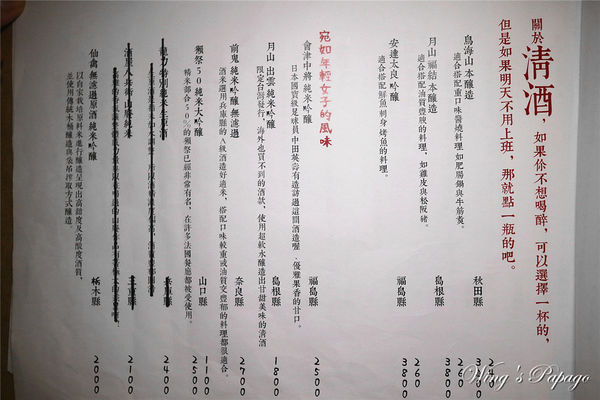 關於清酒，如果你不想喝醉，可以選擇一杯的，
但是如果明天不用上班，那就點一瓶的吧。
鳥海山 本釀造 秋田縣
適合搭配重口味醬燒料理 如肥腸鍋與牛筋煲。 260
月山 福結 本釀造 島根縣 3800
適合搭配油質豐腴的料理，如雞皮與松阪豬。 260
安達太良 吟釀 福島縣 3800
適合搭配鮮魚刺身 烤魚的料理。
宛如年輕女子的風味
會津中將 純米吟釀 福島縣 2500
日本國寶級足球員中田英壽有造訪過這間酒造喔．優雅果香的甘口。
月山 出雲 純米吟釀 島根縣 1800
限定台灣發行，海外也買不到的酒款，使用超軟水釀造出甘甜美味的清酒
前鬼 純米吟釀 無濾過 奈良縣 2700
酒米選用兵庫縣的A級酒造好適米，搭配口味較重或油質交豐郁的料理都很適合。
獺祭50 純米大吟釀 山口縣 1100 2500
精米部合50%的獺祭已經非常有名，在許多法國餐廳都被受使用。
2400
2100
仙禽 無濾過原酒 純米吟釀 栃木縣 2000
以自家栽培原料米進行釀造呈現出高甜度及高酸度酒質，
並使用傳統木桶釀造與袋吊搾取方式釀造。
Wing's Papago